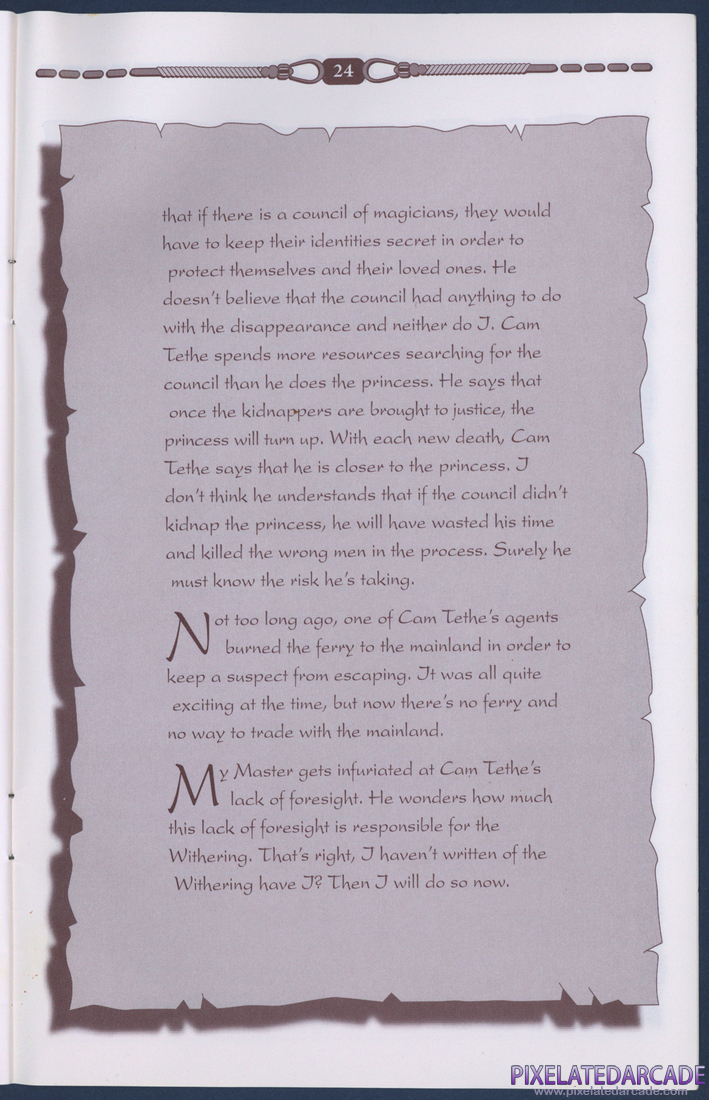 24
that if there is a council of magicians, they would
have to keep their identities secret in order to
protect themselves and their loved ones. He
doesn't believe that the council had anything to do
with the disappearance and neither do I. Cam
Tethe spends more resources searching for the
council than he does the princess. He says that
once the kidnappers are brought to justice, the
princess will turn up. With each new death, Cam
Tethe says that he is closer to the princess. I
don't think he understands that if the council didn't
kidnap the princess, he will have wasted his time
and killed the wrong men in the process. Surely he
must know the risk he's taking.
Not too long ago, one of Cam Tethe's agents
burned the ferry to the mainland in order to
keep a suspect from escaping. It was all quite
exciting at the time, but now there's no ferry and
no way to trade with the mainland.
My Master gets infuriated at Cam Tethe's
lack of foresight. He wonders how much
this lack of foresight is responsible for the
Withering. That's right, I haven't written of the
Withering have I? Then I will do so now.
PIXELATEDARCADE
www.pixelatedarcade.com